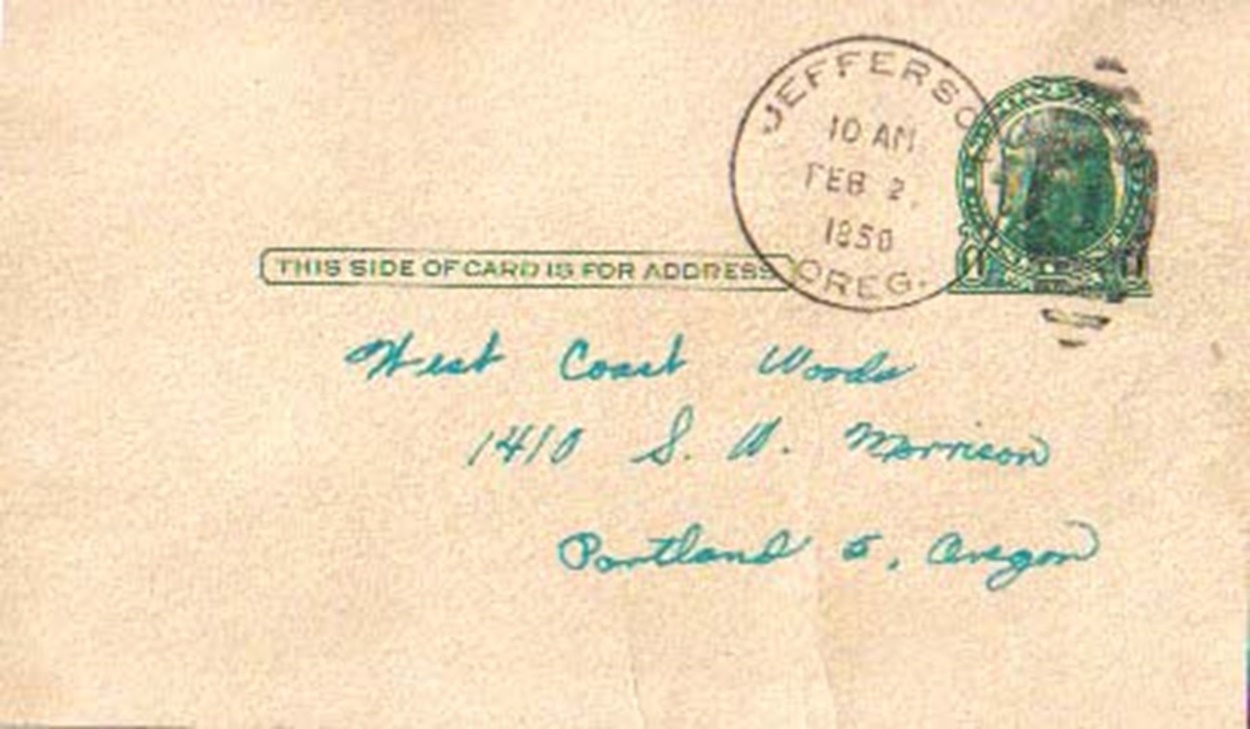 JEFFERSO
10 AM
FEB 2,
1950
OREG.
THIS SIDE OF CARD IS FOR ADDRESS
West Coast Woods
1410 S. W. Morrison
Portland 5, Oregon